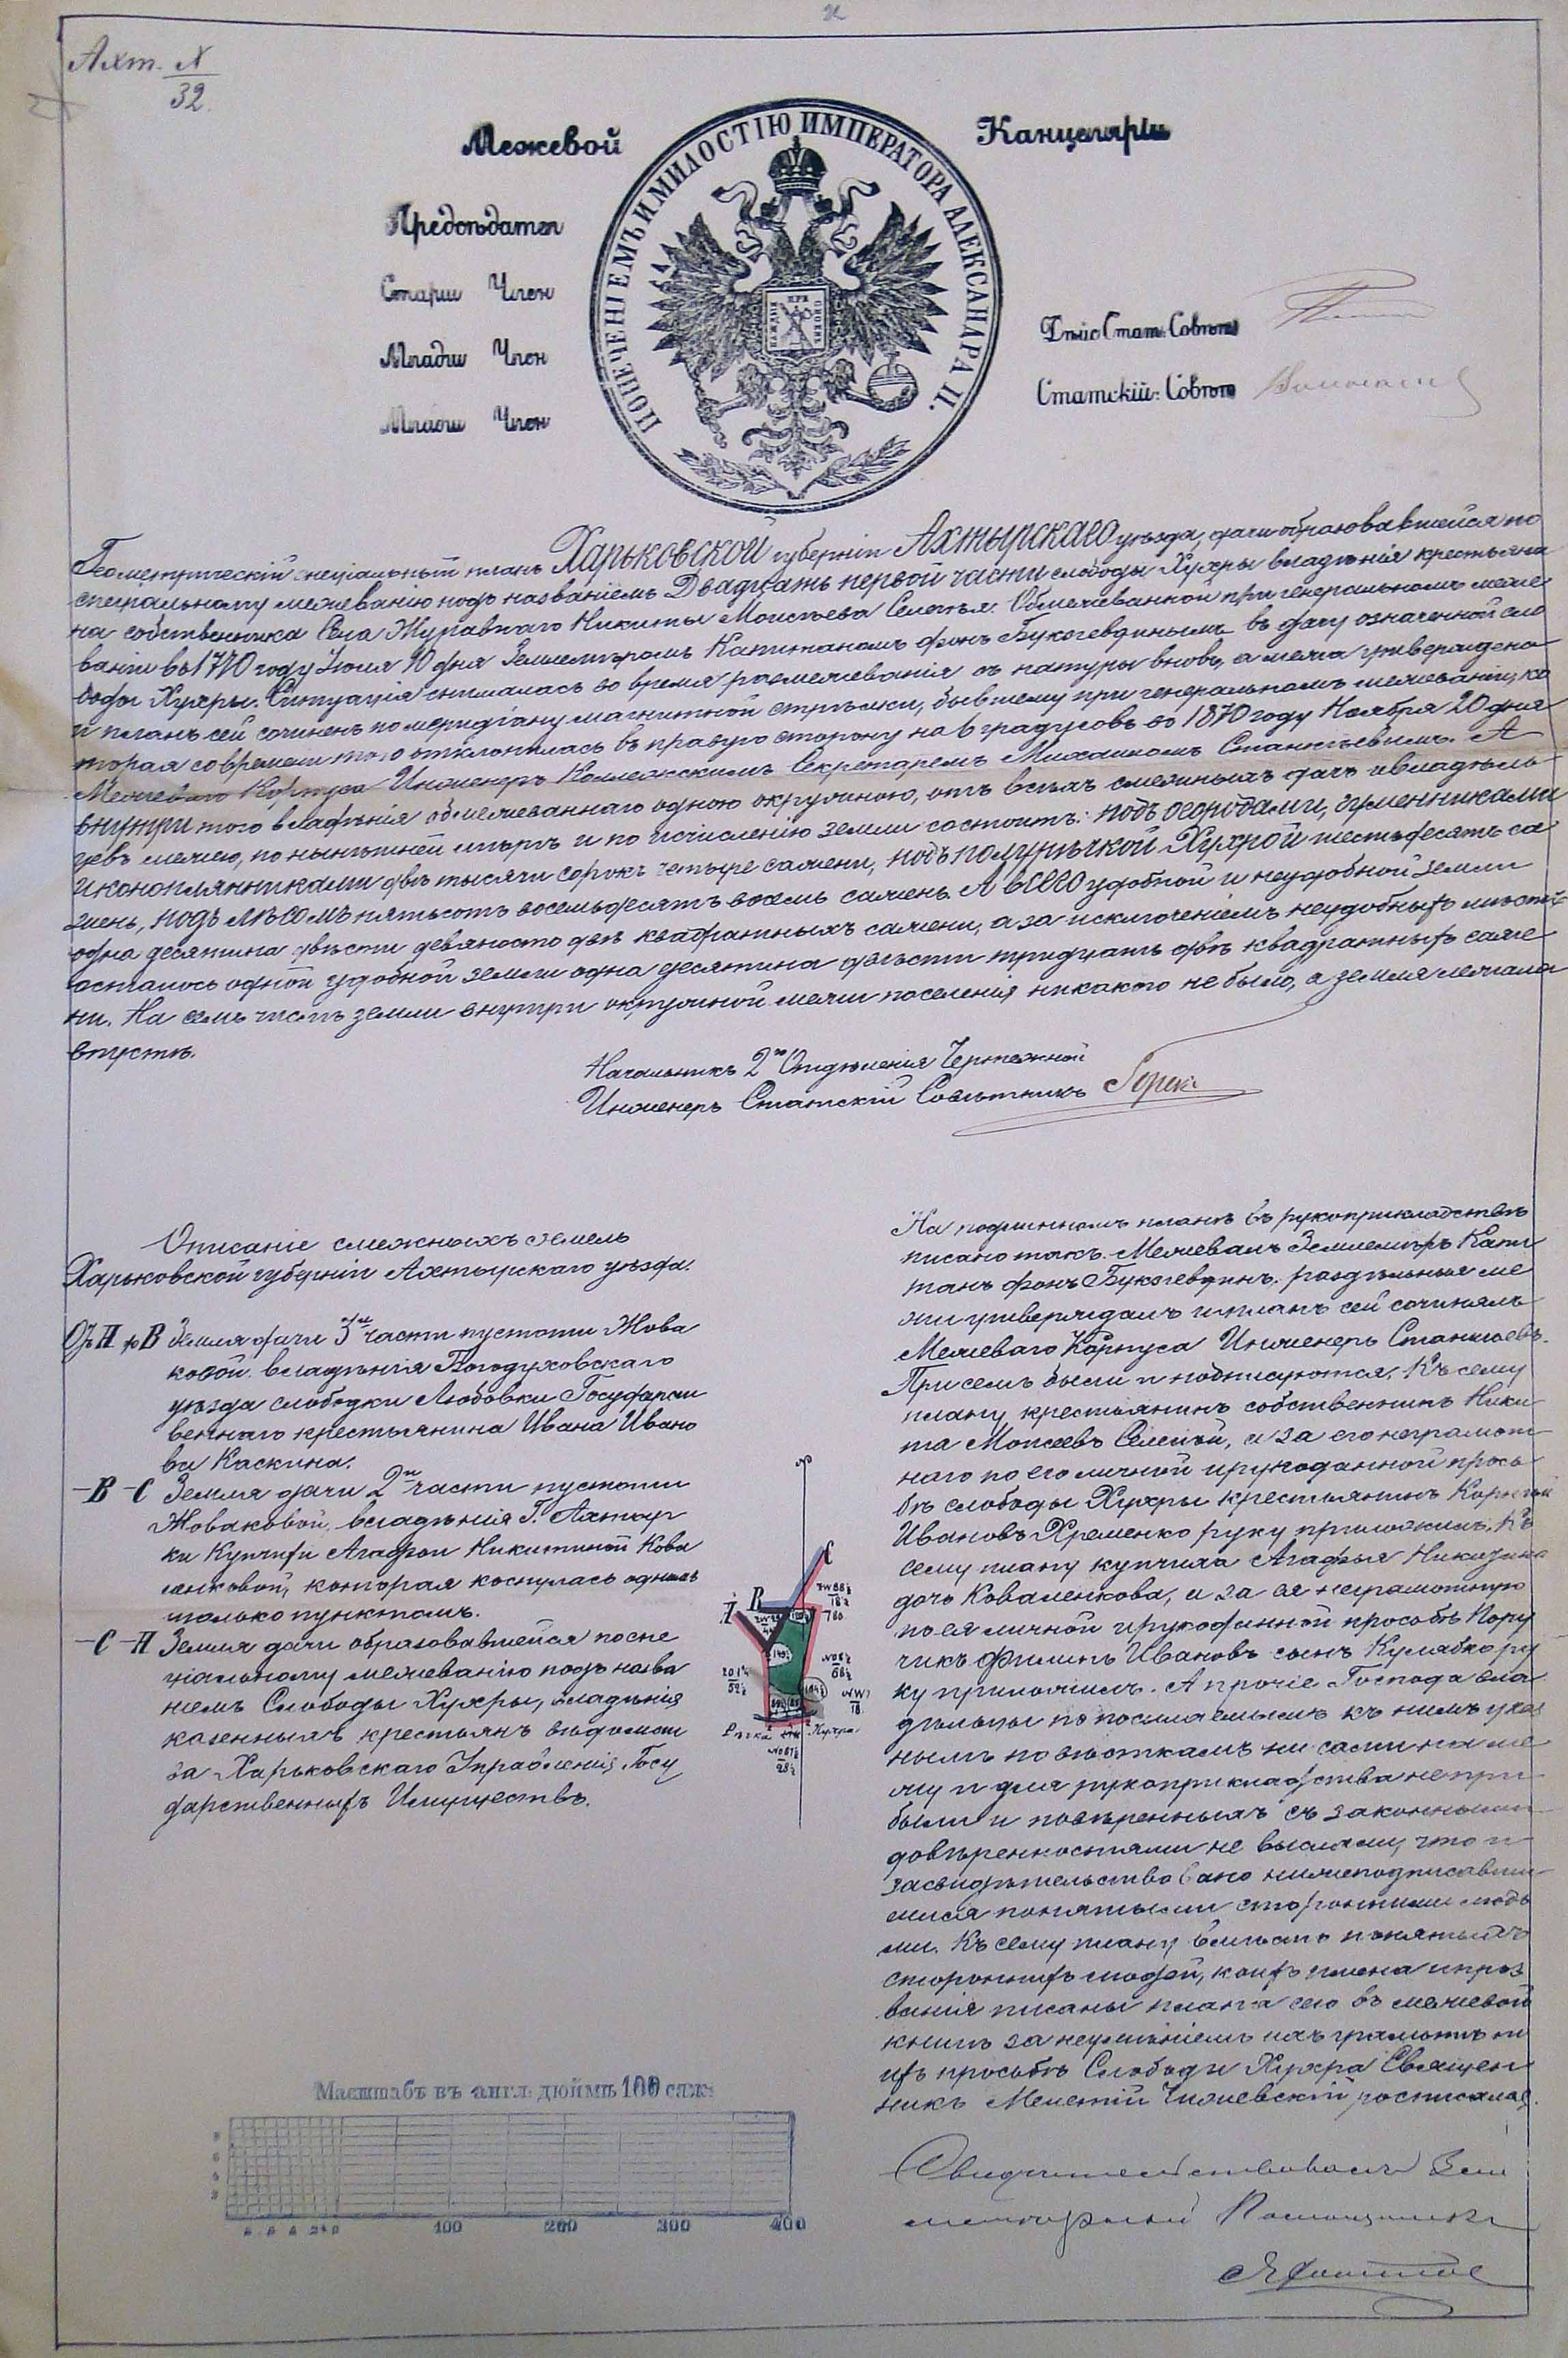 Ахт. N
32.
Межевой Канцеляріи
ПОПЕЧЕНІЕМЪ И МИЛОСТІЮ ИМПЕРАТОРА АЛЕКСАНДРА II.
Предсѣдател
Старш Член
Младш Член
Младш Член
Дѣйс Стат: Совѣтн
Статскій: Совѣтн
Геометрическій спеціальный планъ Харьковской губерніи Ахтырскаго уѣзда, дачи образовавшейся по
спеціальному межеванію подъ названіемъ Двадцать первой части слободы Хухры владѣнія крестьяни
на собственника Села Журавнаго Никиты Моисѣева Обмежеванной при генеральномъ меже
ваніи въ 1770 году Іюля 10 дня Землемѣромъ Капитаномъ фонъ Буксгевдиномъ въ дачу означенной сло
боды Хухры. Ситуація снималась во время размежеванія съ натуры вновь, а межа утверждена
и планъ сей сочиненъ по меридіану магнитной стрѣлки, бывшему при генеральномъ межеваніи, ко
торая со времени того отклонилась въ правую сторону на 6 градусовъ во 1870 году Ноября 20 дня
Межеваго Корпуса Инженеръ Коллежскимъ Секретаремъ Михаиломъ Станкевымъ. А
внутри того владѣнія обмежеваннаго одною окружною, отъ всѣхъ смежныхъ дачъ и владѣль
цевъ межею, по нынѣшней мѣрѣ и по исчисленію земли состоитъ: подъ огородами, гуменниками
и конопляниками двѣ тысячи сорокъ четыре сажени, подъ полурѣчкой Хухрой шестьдесятъ са
жень, подъ лѣсомъ пятьсотъ восемьдесятъ восемь сажень. А всего удобной и неудобной земли
одна десятина двѣсти девяносто двѣ квадратныхъ сажени, а за исключеніемъ неудобныхъ мѣстъ
осталось одной удобной земли одна десятина двѣсти тридцать двѣ квадратныхъ саже
ни. На семъ числѣ земли внутри окружной межи поселенія никакого не было, а земля лежала
впустѣ.
Начальникъ 2го Отдѣленія Чертежной
Инженеръ Статскій Совѣтникъ
Описаніе смежныхъ земель
Харьковской губерніи Ахтырскаго уѣзда.
Отъ A до B Земля дачи 3й части пустоши Жова
ковой владѣнія Богодуховскаго
уѣзда слободки Любовки Государст
веннаго крестьянина Ивана Ивано
ва Каскина.
– B – C Земля дачи 2й части пустоши
Жоваковой, владѣнія Г. Ахтыр
ки Купчихи Агафьи Никитиной Кова
ленковой, которая коснулась однимъ
только пунктомъ.
– C – A Земля дачи образовавшейся по спе
ціальному межеванію подъ назва
ніемъ Слободы Хухры, владѣнія
казенныхъ крестьянъ вѣдомст
ва Харьковскаго Управленія Госу
дарственныхъ Имуществъ.
A B C
Рѣчка Хухра
На подлинномъ планѣ въ рукоприкладствѣ
писано такъ. Межевалъ Землемѣръ Капи
танъ фонъ Буксгевдинъ. раздѣльныя ме
жи утверждалъ и планъ сей сочинялъ
Межеваго Корпуса Инженеръ Станкевъ.
При семъ были и подписуются. Къ сему
плану, крестьянинъ собственникъ Ники
та Моисеевъ а за его неграмот
наго по его личной и рукоданной прось
бѣ слободы Хухры крестьянинъ Корнѣй
Ивановъ Хременко руку приложилъ. Къ
сему плану купчиха Агафья Никитина
дочь Коваленкова, а за ея неграмотную
по ея личной и рукоданной просьбѣ Пору
чикъ Филипъ Ивановъ сынъ Кулябко ру
ку приложилъ. А прочіе Господа вла
дѣльцы по посылаемымъ къ нимъ указ
нымъ повѣсткамъ ни сами на ме
жу и для рукоприкладства непри
были и повѣренныхъ съ законными
довѣренностями не выслали, что и
засвидѣтельствовано нижеподписавши
мися понятыми сторонними людь
ми. Къ сему плану вмѣсто понятыхъ
стороннихъ людей, коихъ имена и проз
ванія писаны плана сего въ межевой
книгѣ за неумѣніемъ ихъ грамотѣ по
ихъ просьбѣ Слободы Хухра Священ
никъ Мелетій росписался.
Масштабъ въ англ. дюймѣ 100 саж.
100 200 300 400
Свидѣтельствовалъ Зем
лемѣрный Помощникъ